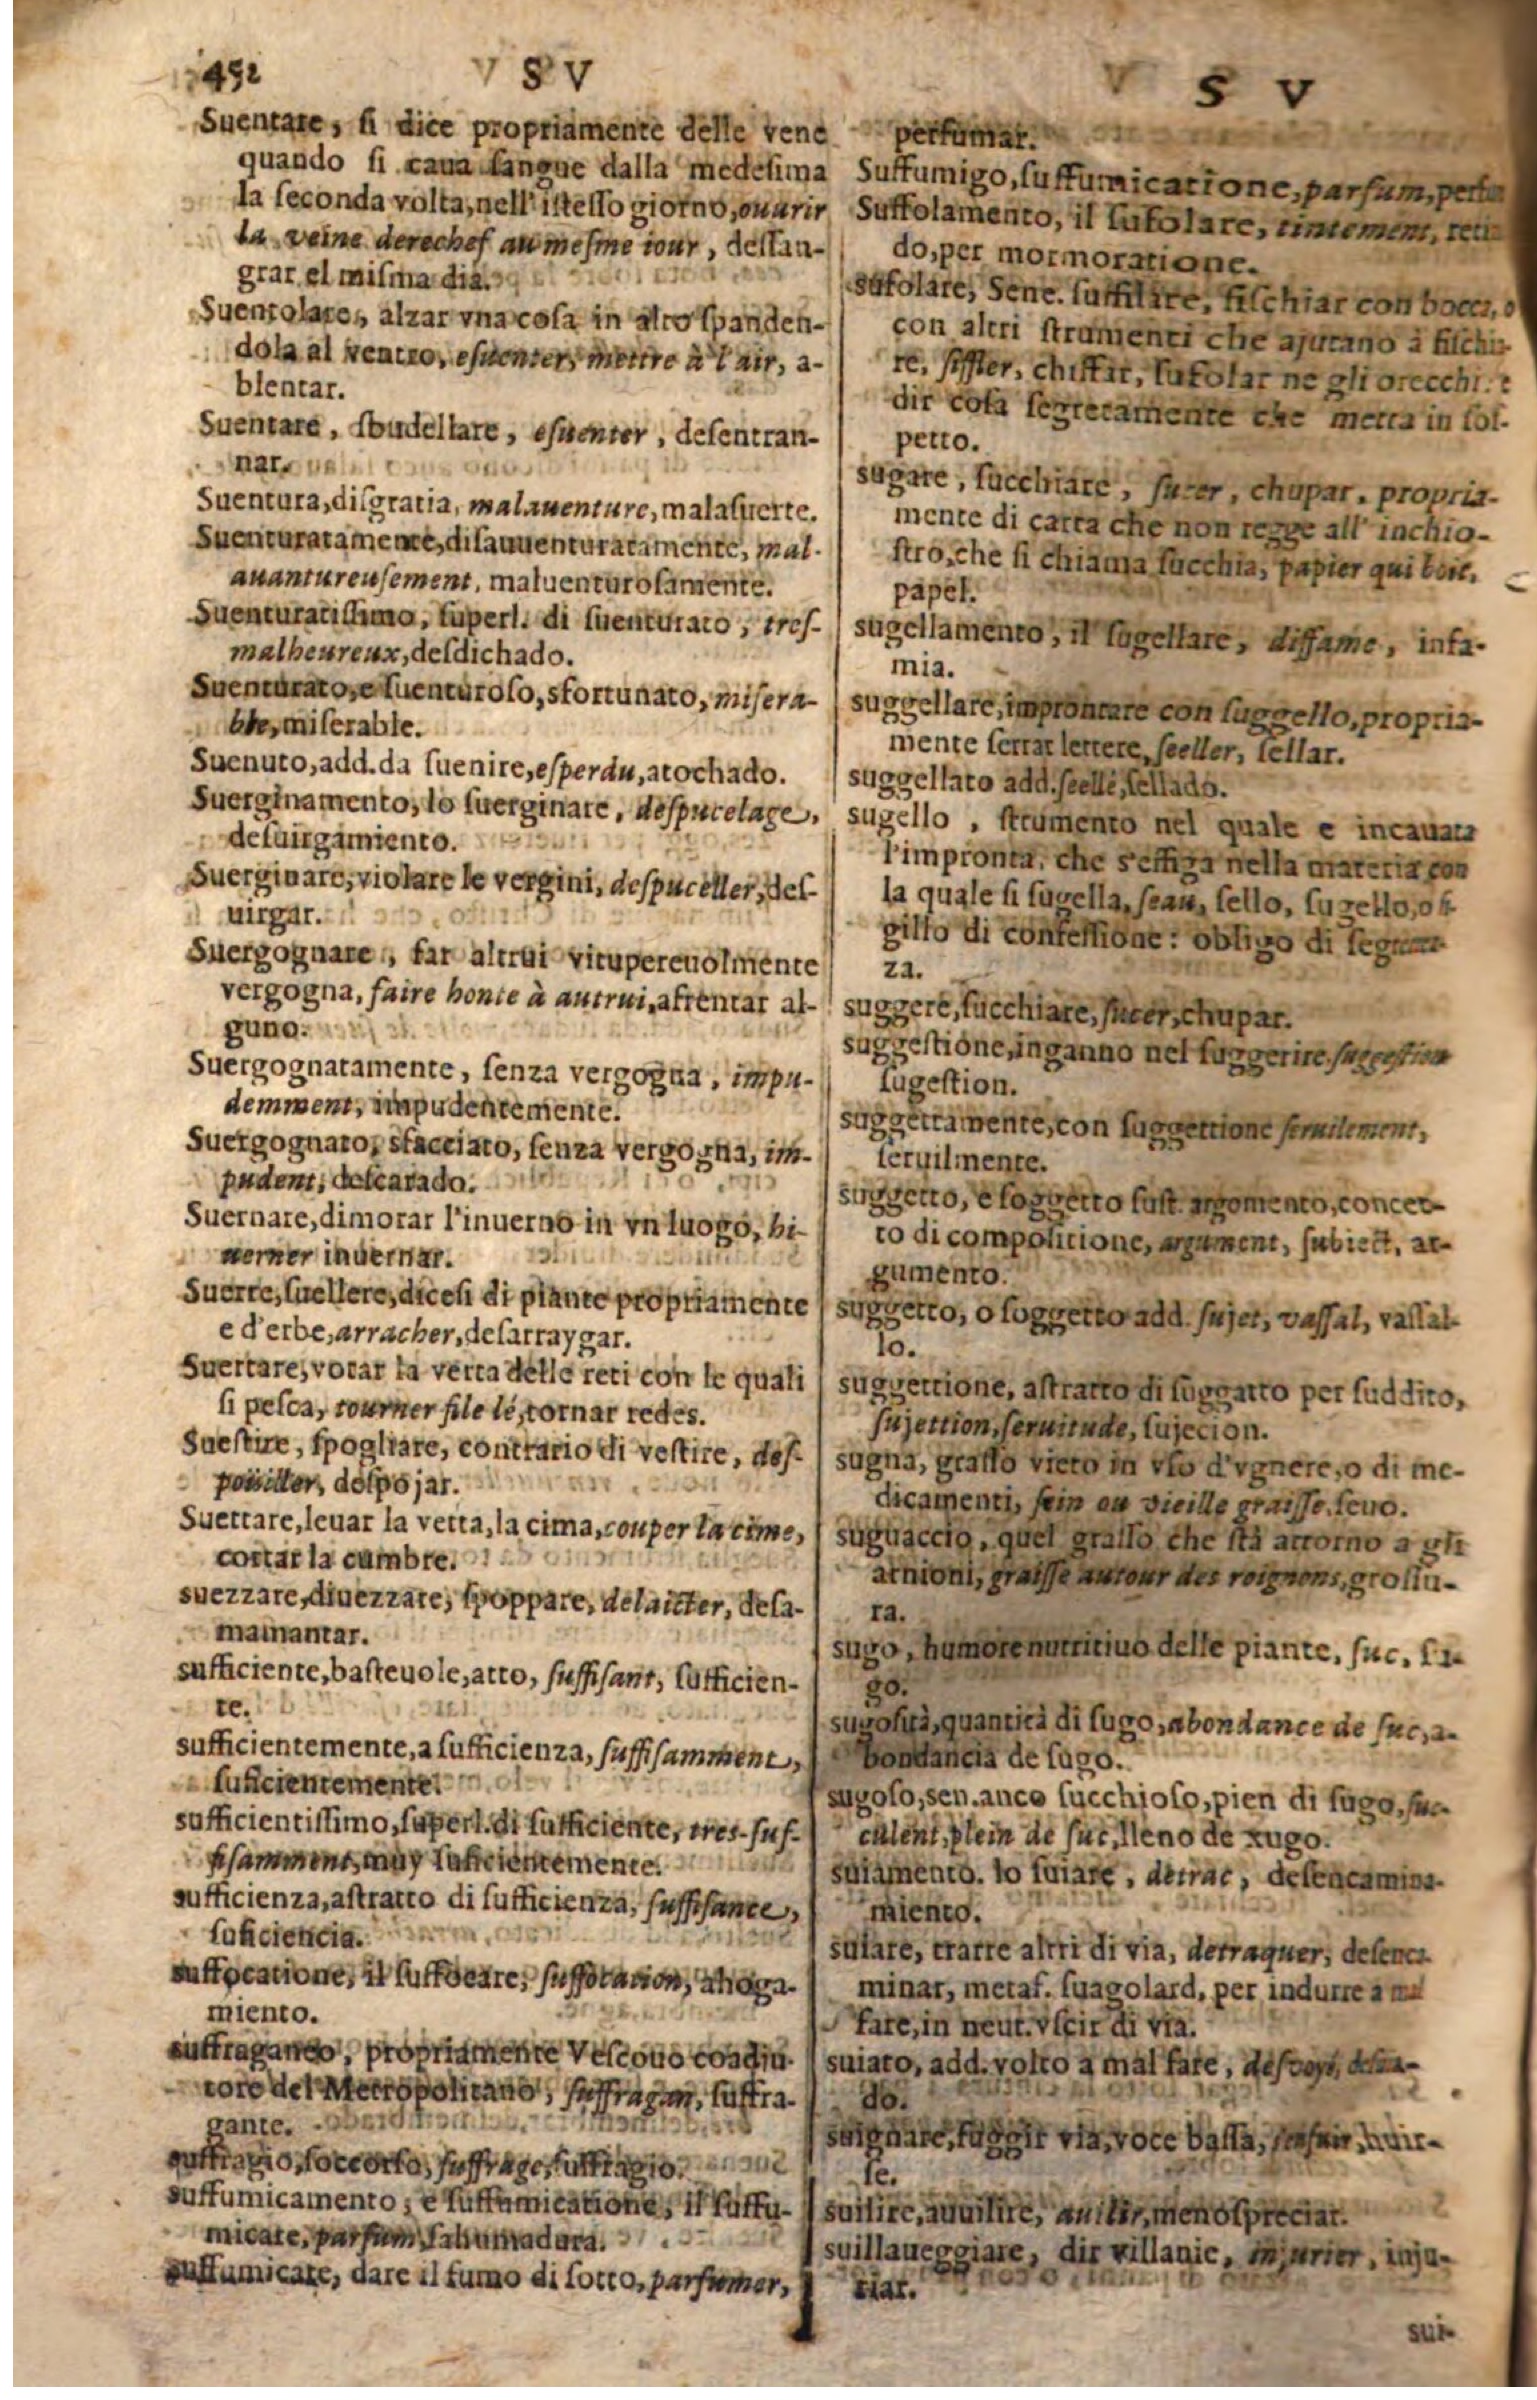 452
S V
Suentare, ſi dice propriamente delle vene
quando ſi caua ſangue dalla medeſima
la ſeconda volta, nell' iſteſſo giorno, ouurir
la veine derechef au meſme iour, deſſan-
grar el miſma dia.
Suentolare, alzar vna coſa in alto ſpanden-
dola al vento, eſuenter, mettre à l'air, a-
blentar.
Suentare, sbudellare, eſuenter, deſentran-
nar.
Suentura, diſgratia, malauenture, malaſuerte.
Suenturatamente, diſauuenturatamente, mal-
auantureuſement, maluenturoſamente.
Suenturatiſſimo, ſuperl. di ſuenturato, treſ-
malheureux, deſdichado.
Suenturato, e ſuenturoſo, sfortunato, miſera-
ble, miſerable.
Suenuto, add. da ſuenire, eſperdu, atochado.
Suerginamento, lo ſuerginare, deſpucelage,
deſuirgamiento.
Suerginare, violare le vergini, deſpuceller, deſ-
uirgar.
Suergognare, far altrui vitupereuolmente
vergogna, faire honte à autrui, afrentar al-
guno.
Suergognatamente, ſenza vergogna, impu-
demment, impudentemente.
Suergognato, sfacciato, ſenza vergogna, im-
pudent, deſcarado.
Suernare, dimorar l'inuerno in vn luogo, hi-
uerner inuernar.
Suerre, ſuellere, diceſi di piante propriamente
e d'erbe, arracher, deſarraygar.
Suertare, votar la verta delle reti con le quali
ſi peſca, tourner file lé, tornar redes.
Sueſtire, ſpogliare, contrario di veſtire, deſ-
poüiller, deſpojar.
Suettare, leuar la vetta, la cima, couper la cime,
cortar la cumbre.
suezzare, diuezzare, ſpoppare, delaicter, deſa-
mamantar.
sufficiente, baſteuole, atto, ſuffiſant, ſufficien-
te.
sufficientemente, a ſufficienza, ſuffiſamment,
ſuficientemente.
sufficientiſſimo, ſuperl. di ſufficiente, tres-ſuf-
fiſamment, muy ſuficientemente.
sufficienza, aſtratto di ſufficienza, ſuffiſance,
ſuficiencia.
suffocatione, il ſuffocare, ſuffocation, ahoga-
miento.
suffraganeo, propriamente Veſcouo coadiu-
tore del Metropolitano, ſuffragan, ſuffra-
gante.
suffragio, ſoccorſo, ſuffrage, ſuffragio.
suffumicamento, e ſuffumicatione, il ſuffu-
micare, parfum, ſahumadura.
suffumicare, dare il fumo di ſotto, parfumer,
S V
perfumar.
Suffumigo, ſuffumicatione, parfum,
Suffolamento, il ſufolare, tintement,
do, per mormoratione.
sufolare, Sene. ſuffilare, fiſchiar con bocca, o
con altri ſtrumenti che ajutano à fiſchia-
re, ſiffler, chiflar, ſufolar ne gli orecchi:
dir coſa ſegretamente che metta in ſoſ-
petto.
sugare, ſucchiare, ſucer, chupar, propria-
mente di carta che non regge all' inchio-
ſtro, che ſi chiama ſucchia, papier qui boit,
papel.
sugellamento, il ſugellare, diffame, infa-
mia.
suggellare, improntare con ſuggello, propria-
mente ſerrar lettere, ſeeller, ſellar.
suggellato add. ſeellé, ſellado.
sugello, ſtrumento nel quale e incauata
l'impronta, che s'effiga nella materia con
la quale ſi ſugella, ſeau, ſello, ſugello,
gillo di confeſſione: obligo di
za.
suggere, ſucchiare, ſucer, chupar.
suggeſtione, inganno nel ſuggerire, ſuggeſtion
ſugeſtion.
suggettamente, con ſuggettione ſeruilement,
ſeruilmente.
suggetto, e ſoggetto ſuſt. argomento, concet-
to di compoſitione, argument, ſubiect, ar-
gumento.
suggetto, o ſoggetto add. ſujet, vaſſal, vaſſal-
lo.
suggettione, aſtratto di ſuggatto per ſuddito,
ſujettion, ſeruitude, ſujecion.
sugna, graſſo vieto in vſo d'vgnere, o di me-
dicamenti, ſein ou vieille graiſſe, ſeuo.
sugnaccio, quel graſſo che ſtà attorno a gli
arnioni, graiſſe autour des roignons, groſſu-
ra.
sugo, humore nutritiuo delle piante, ſuc, ſu-
go.
sugoſità, quantità di ſugo, abondance de ſuc, a-
bondancia de ſugo.
sugoſo, sen. anco ſucchioſo, pien di ſugo, ſuc-
culent, plein de ſuc, lleno de xugo.
suiamento. lo ſuiare, detrac, deſencamina-
miento.
suiare, trarre altri di via, detraquer, deſenca-
minar, metaf. ſuagolard, per indurre a mal
fare, in neut. vſcir di via.
suiato, add. volto a mal fare,
do.
suignare, fuggir via, voce baſſa,
ſe.
suilire, auuilire, auilir, menoſpreciar.
suillaueggiare, dir villanie, injurier, inju-
riar.
sui-